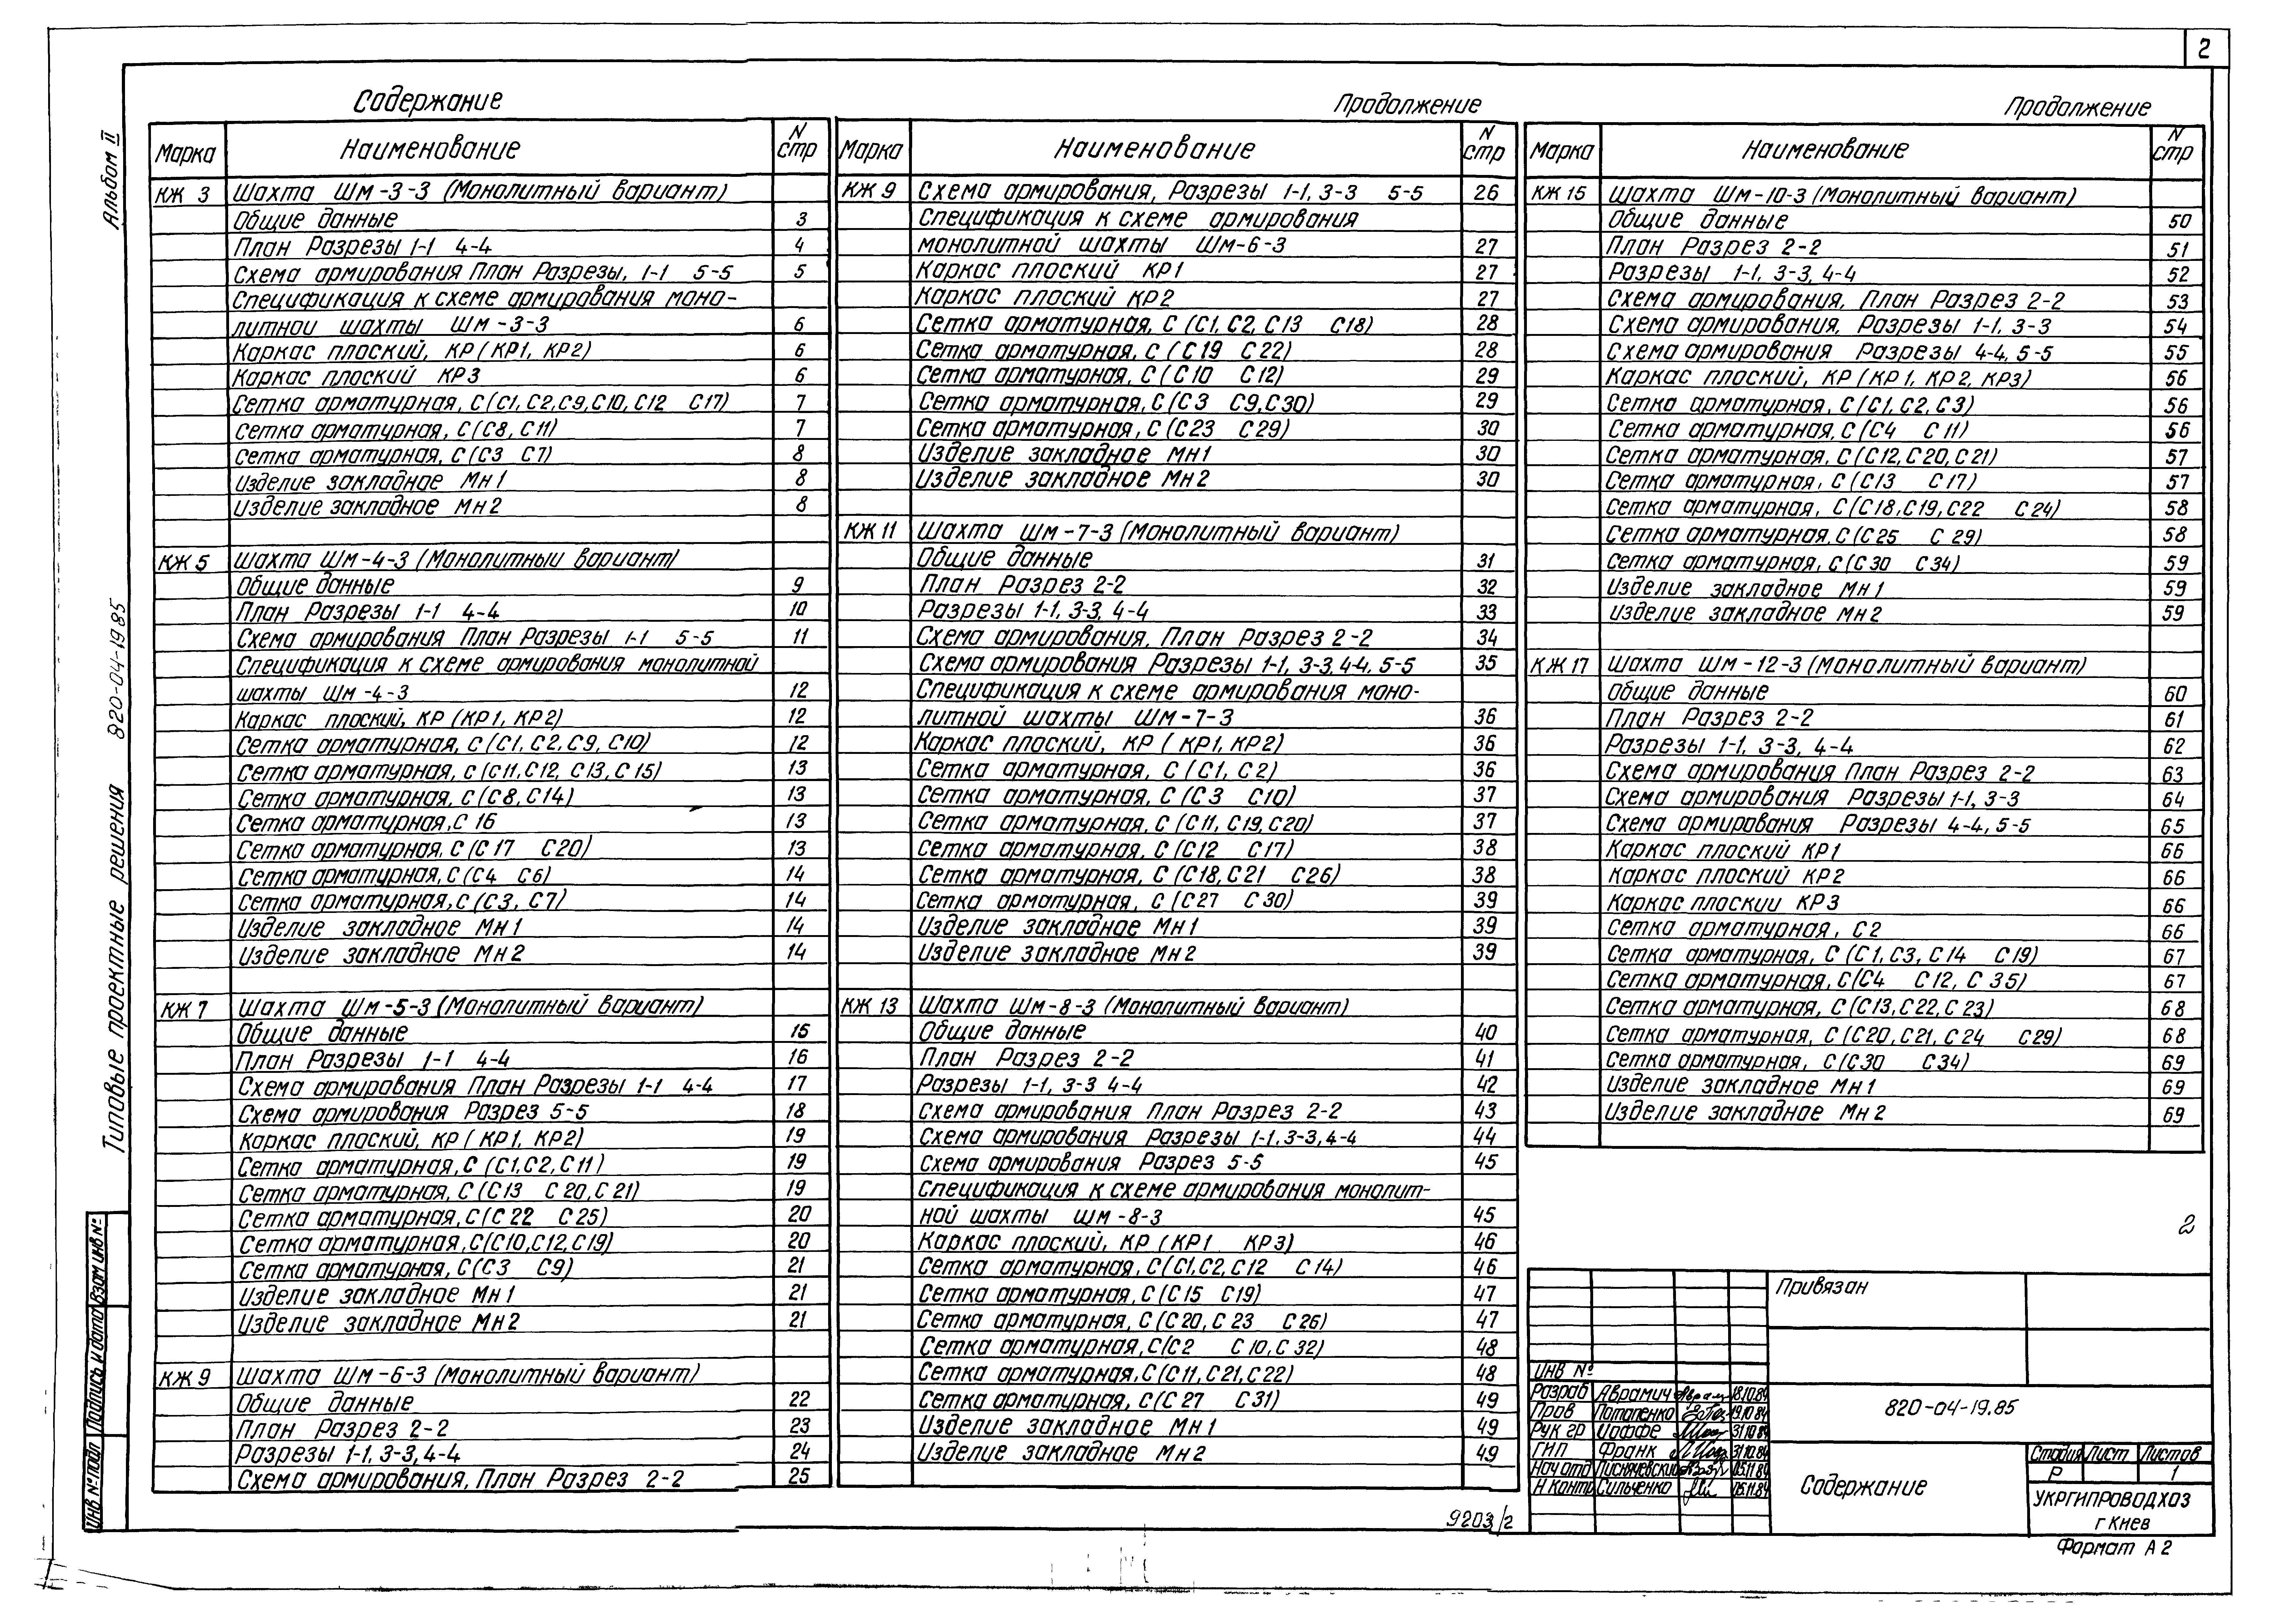 2
Альбом II
Типовые проектные решения 820-04-19.85
Содержание
Марка Наименование N стр
КЖ 3 Шахта Шм-3-3 (Монолитный вариант)
Общие данные 3
План Разрезы 1-1 4-4 4
Схема армирования План Разрезы, 1-1 5-5 5
Спецификация к схеме армирования моно-
литной шахты Шм-3-3 6
Каркас плоский, КР (КР1, КР2) 6
Каркас плоский КР3 6
Сетка арматурная, С (С1, С2, С9, С10, С12 С17) 7
Сетка арматурная, С (С8, С11) 7
Сетка арматурная, С (С3 С7) 8
Изделие закладное Мн1 8
Изделие закладное Мн2 8
КЖ 5 Шахта Шм-4-3 (Монолитный вариант)
Общие данные 9
План Разрезы 1-1 4-4 10
Схема армирования План Разрезы 1-1 5-5 11
Спецификация к схеме армирования монолитной
шахты Шм-4-3 12
Каркас плоский, КР (КР1, КР2) 12
Сетка арматурная, С (С1, С2, С9, С10) 12
Сетка арматурная, С (С11, С12, С13, С15) 13
Сетка арматурная, С (С8, С14) 13
Сетка арматурная, С 16 13
Сетка арматурная, С (С17 С20) 13
Сетка арматурная, С (С4 С6) 14
Сетка арматурная, С (С3, С7) 14
Изделие закладное Мн1 14
Изделие закладное Мн2 14
КЖ 7 Шахта Шм-5-3 (Монолитный вариант)
Общие данные 15
План Разрезы 1-1 4-4 16
Схема армирования План Разрезы 1-1 4-4 17
Схема армирования Разрез 5-5 18
Каркас плоский, КР (КР1, КР2) 19
Сетка арматурная, С (С1, С2, С11) 19
Сетка арматурная, С (С13 С20, С21) 19
Сетка арматурная, С (С22 С25) 20
Сетка арматурная, С (С10, С12, С19) 20
Сетка арматурная, С (С3 С9) 21
Изделие закладное Мн1 21
Изделие закладное Мн2 21
КЖ 9 Шахта Шм-6-3 (Монолитный вариант)
Общие данные 22
План Разрез 2-2 23
Разрезы 1-1, 3-3, 4-4 24
Схема армирования, План Разрез 2-2 25
Продолжение
Марка Наименование N стр
КЖ 9 Схема армирования, Разрезы 1-1, 3-3 5-5 26
Спецификация к схеме армирования
монолитной шахты Шм-6-3 27
Каркас плоский КР1 27
Каркас плоский КР2 27
Сетка арматурная, С (С1, С2, С13 С18) 28
Сетка арматурная, С (С19 С22) 28
Сетка арматурная, С (С10 С12) 29
Сетка арматурная, С (С3 С9, С30) 29
Сетка арматурная, С (С23 С29) 30
Изделие закладное Мн1 30
Изделие закладное Мн2 30
КЖ 11 Шахта Шм-7-3 (Монолитный вариант)
Общие данные 31
План Разрез 2-2 32
Разрезы 1-1, 3-3, 4-4 33
Схема армирования, План Разрез 2-2 34
Схема армирования Разрезы 1-1, 3-3, 4-4, 5-5 35
Спецификация к схеме армирования моно-
литной шахты Шм-7-3 36
Каркас плоский, КР (КР1, КР2) 36
Сетка арматурная, С (С1, С2) 36
Сетка арматурная, С (С3 С10) 37
Сетка арматурная, С (С11, С19, С20) 37
Сетка арматурная, С (С12 С17) 38
Сетка арматурная, С (С18, С21 С26) 38
Сетка арматурная, С (С27 С30) 39
Изделие закладное Мн1 39
Изделие закладное Мн2 39
КЖ 13 Шахта Шм-8-3 (Монолитный вариант)
Общие данные 40
План Разрез 2-2 41
Разрезы 1-1, 3-3 4-4 42
Схема армирования План Разрез 2-2 43
Схема армирования Разрезы 1-1, 3-3, 4-4 44
Схема армирования Разрез 5-5 45
Спецификация к схеме армирования монолит-
ной шахты Шм-8-3 45
Каркас плоский, КР (КР1 КР3) 46
Сетка арматурная, С (С1, С2, С12 С14) 46
Сетка арматурная, С (С15 С19) 47
Сетка арматурная, С (С20, С23 С26) 47
Сетка арматурная, С (С2 С10, С32) 48
Сетка арматурная, С (С11, С21, С22) 48
Сетка арматурная, С (С27 С31) 49
Изделие закладное Мн1 49
Изделие закладное Мн2 49
Продолжение
Марка Наименование N стр
КЖ 15 Шахта Шм-10-3 (Монолитный вариант)
Общие данные 50
План Разрез 2-2 51
Разрезы 1-1, 3-3, 4-4 52
Схема армирования, План Разрез 2-2 53
Схема армирования, Разрезы 1-1, 3-3 54
Схема армирования Разрезы 4-4, 5-5 55
Каркас плоский, КР (КР1, КР2, КР3) 56
Сетка арматурная, С (С1, С2, С3) 56
Сетка арматурная, С (С4 С11) 56
Сетка арматурная, С (С12, С20, С21) 57
Сетка арматурная, С (С13 С17) 57
Сетка арматурная, С (С18, С19, С22 С24) 58
Сетка арматурная, С (С25 С29) 58
Сетка арматурная, С (С30 С34) 59
Изделие закладное Мн1 59
Изделие закладное Мн2 59
КЖ 17 Шахта Шм-12-3 (Монолитный вариант)
Общие данные 60
План Разрез 2-2 61
Разрезы 1-1, 3-3, 4-4 62
Схема армирования План Разрез 2-2 63
Схема армирования Разрезы 1-1, 3-3 64
Схема армирования Разрезы 4-4, 5-5 65
Каркас плоский КР1 66
Каркас плоский КР2 66
Каркас плоский КР3 66
Сетка арматурная, С2 66
Сетка арматурная, С (С1, С3, С14 С19) 67
Сетка арматурная, С (С4 С12, С35) 67
Сетка арматурная, С (С13, С22, С23) 68
Сетка арматурная, С (С20, С21, С24 С29) 68
Сетка арматурная, С (С30 С34) 69
Изделие закладное Мн1 69
Изделие закладное Мн2 69
2
Привязан
Инв №
Разраб Аврамич 18.10.84
Пров Потапенко 19.10.84
Рук гр Иоффе 31.10.84
ГИП Франк 31.10.84
Нач отд 05.11.84
Н Контр Сильченко 05.11.84
820-04-19.85
Содержание
Стадия Лист Листов
Р 1
УКРГИПРОВОДХОЗ
г Киев
Формат А2
9203/2
Инв № подл Подпись и дата Взам инв №